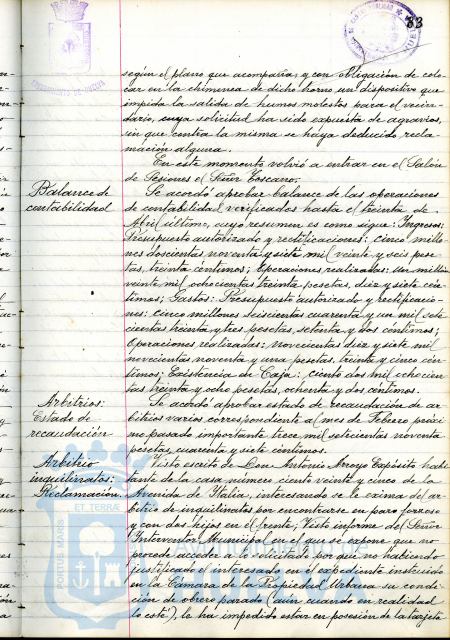 83
según el plano que acompaña, y con obligación de colo-
car en la chimenea de dicho horno un dispositivo que
impida la salida de humos molestos para el vecin-
dario, cuya solicitud ha sido expuesta de agravios,
sin que contra la misma se haya deducido recla-
mación alguna.
En este momento volvió a entrar en el Salón
de Sesiones el Señor Toscano.
Balance de
contabilidad
Se acordó aprobar balance de las operaciones
de contabilidad verificados hasta el treinta de
Abril último, cuyo resumen es como sigue: Ingresos:
Presupuesto autorizado y rectificaciones: cinco millo-
nes doscientas noventa y siete mil veinte y seis pese-
tas, treinta céntimos; Operaciones realizadas: un millón
veinte mil ochocientas treinta pesetas, diez y siete cén-
timos; Gastos: Presupuesto autorizado y rectificacio-
nes: cinco millones seiscientas cuarenta y un mil sete-
cientas treinta y tres pesetas, setenta y dos céntimos;
Operaciones realizadas: novecientas diez y siete mil
novecientas noventa y una pesetas, treinta y cinco cén-
timos; Existencia de Caja: ciento dos mil ochocien-
tas treinta y ocho pesetas, ochenta y dos céntimos.
Arbitrios:
Estado de
recaudación
Se acordó aprobar estado de recaudación de ar-
bitrios varios correspondiente al mes de Febrero próxi-
mo pasado importante trece mil setecientas noventa
pesetas, cuarenta y siete céntimos.
Arbitrio
inquilinatos:
Reclamación.
Visto escrito de Don Antonio Arroyo Expósito habi-
tante de la casa número ciento veinte y cinco de la
Avenida de Italia, interesando se le exima del ar-
bitrio de inquilinatos por encontrarse en paro forzoso
y con dos hijos en el frente; Visto informe del Señor
Interventor Municipal en el que se expone que no
procede acceder a lo solicitado por que no habiendo
justificado el interesado en el expediente instruido
en la Cámara de la Propiedad Urbana su condi-
ción de obrero parado (aún cuando en realidad
lo esté), le ha impedido estar en posesión de la tarjeta
PORTUS MARIS
ET TERRÆ